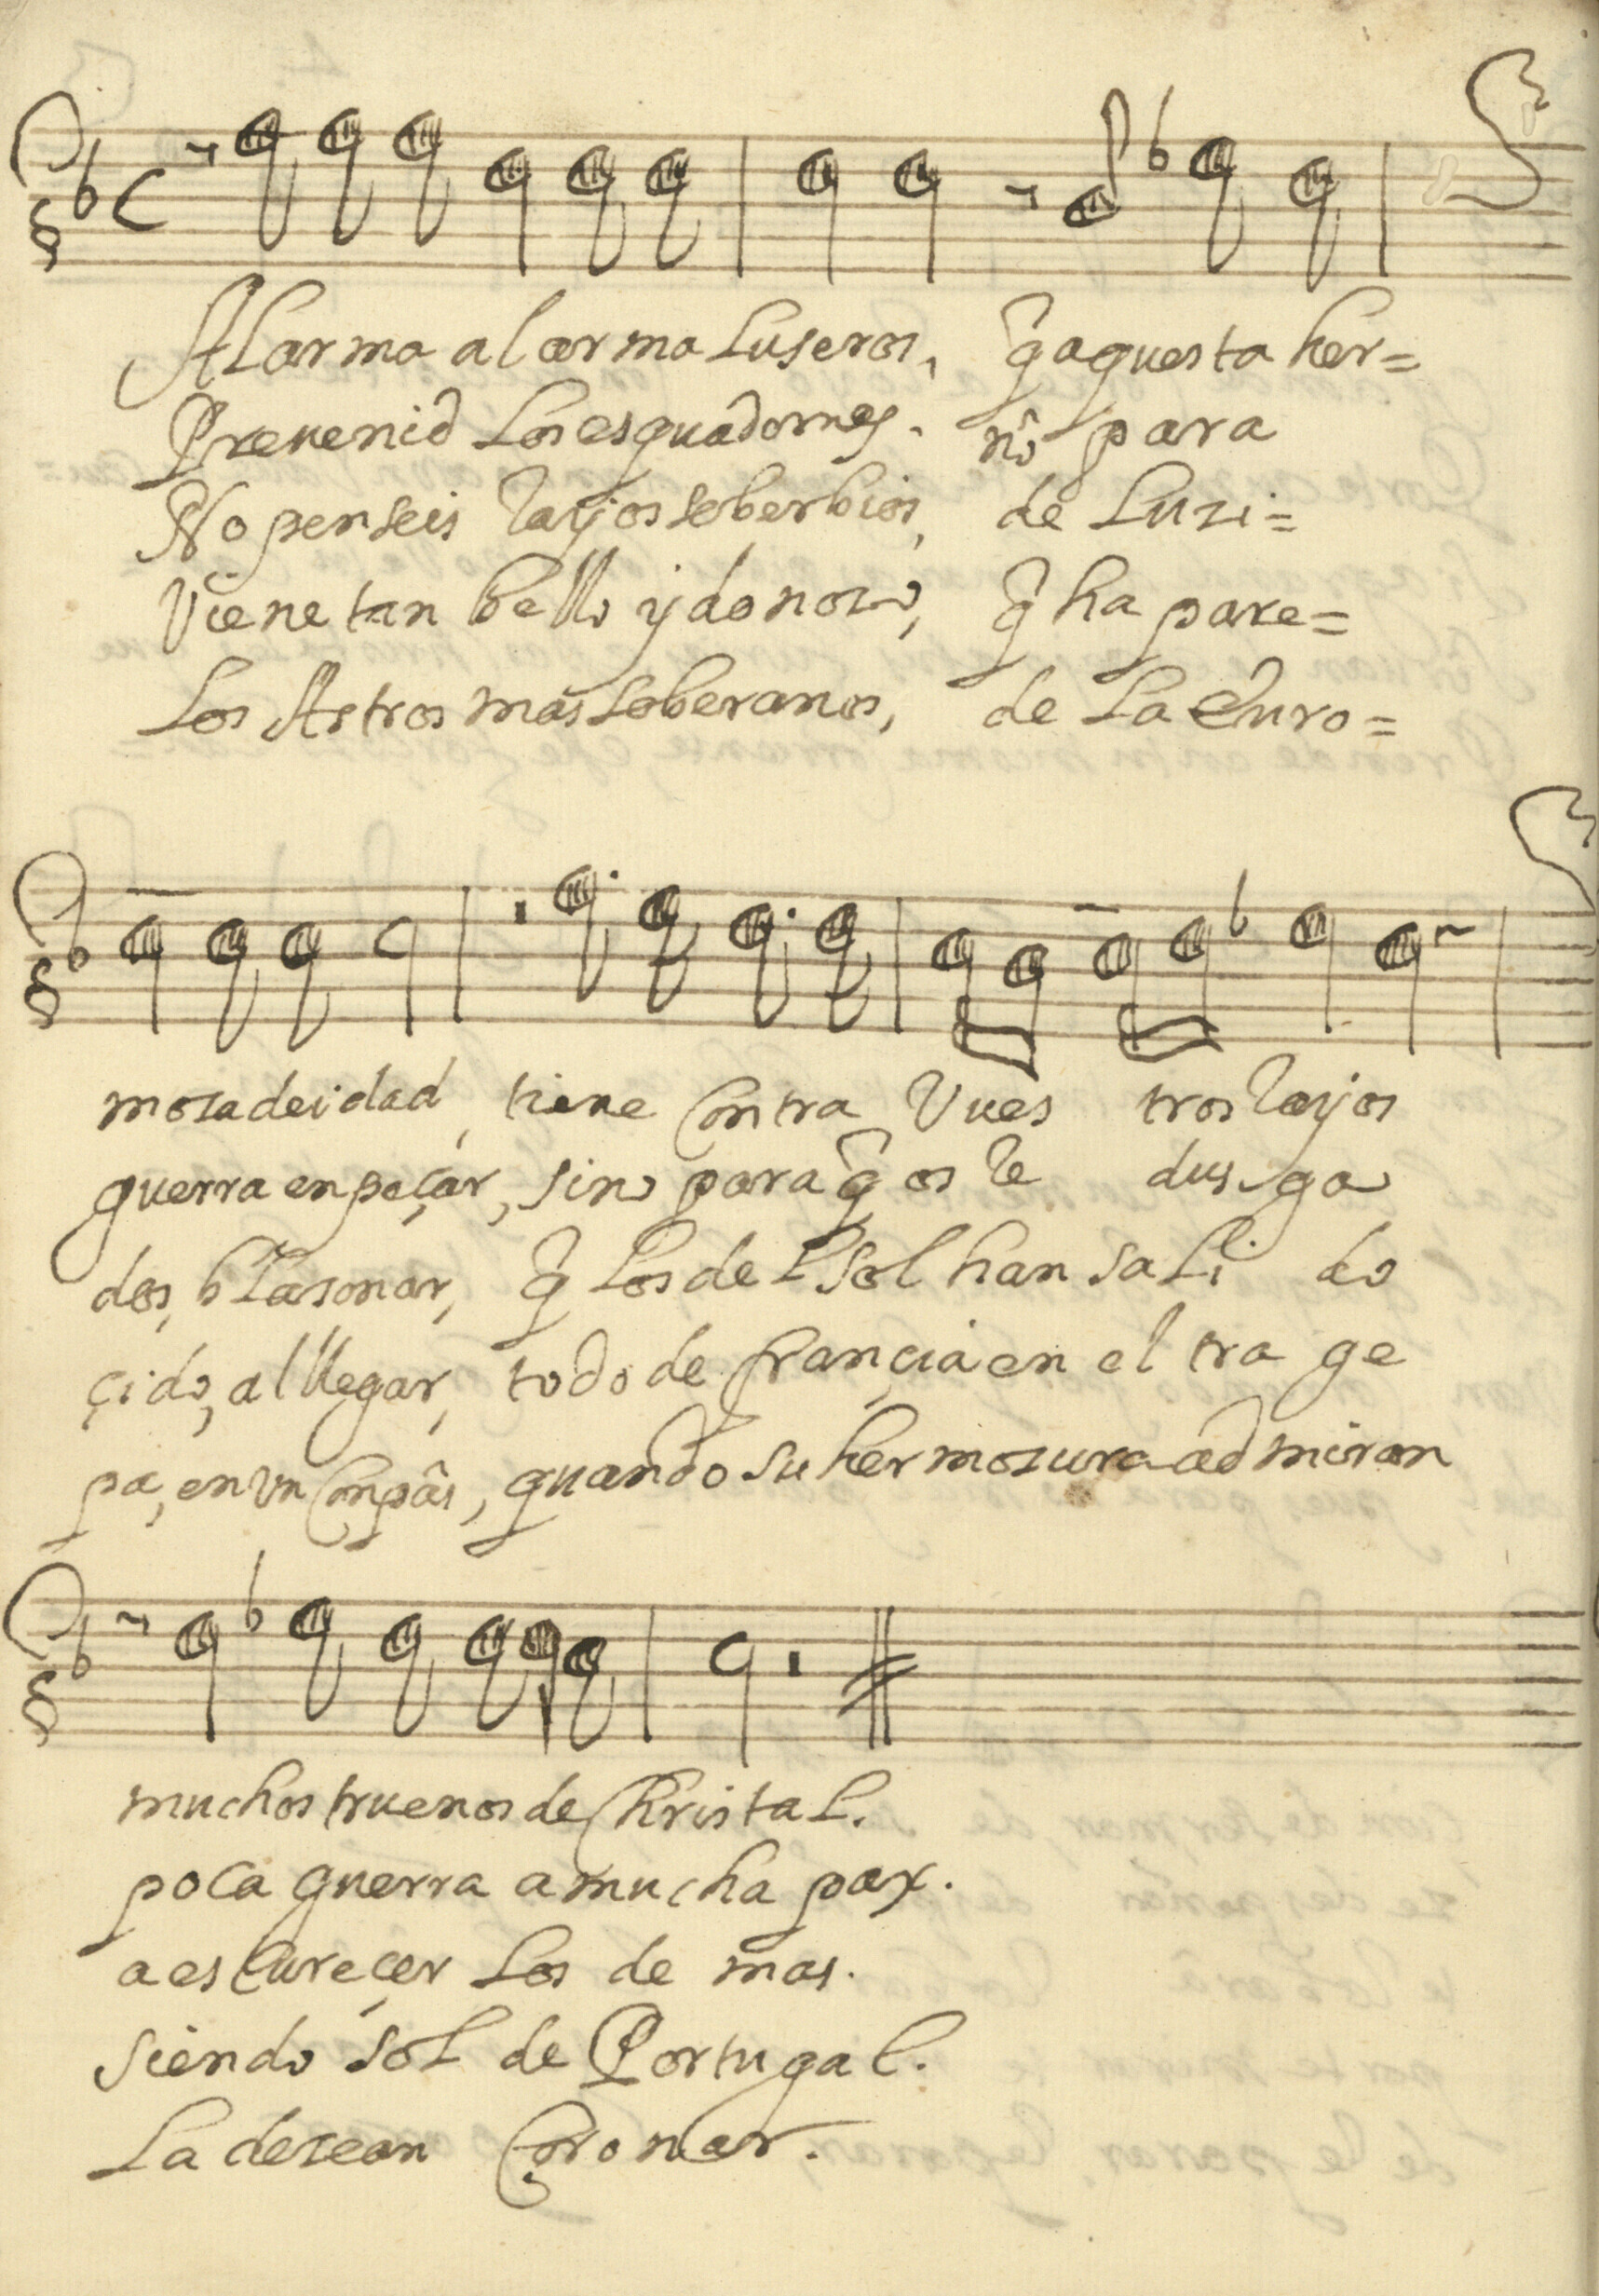 Al arma al arma Luseros, q̃ aquesta her=
Preuenid Los esquadornes. nó para
No penseis rayos soberbios, de Luzi=
Viene tan bello y donoso, q̃ ha pare=
Los Astros mas soberanos, de La Euro=
mosa deidad, tiene Contra Vues tros rayos
guerra enpeçar, sino para q̃ os re dus-ga
dos, blasonar, q̃ Los del Sol han saLi do
çido, al llegar, todo de françia en el tra ge
pa, en vn Conpâs, quando su hermosura admiran
muchos truenos de ChristaL.
poca guerra a mucha pax.
a escureçer Los de mas.
siendo soL de Portugal.
La desean Coronar.